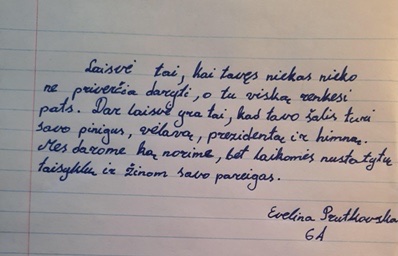 Laisvė tai, kai tavęs niekas nieko
ne priverčia daryti, o tu viską renkesi
pats. Dar laisvė yra tai, kad tavo šalis turi
savo pinigus, vėlavą, prezidentą ir himną.
Mes darome ką norime, bet laikomės nustatytų
taisyklių ir žinom savo pareigas.
Evelina Prutkovska
6A